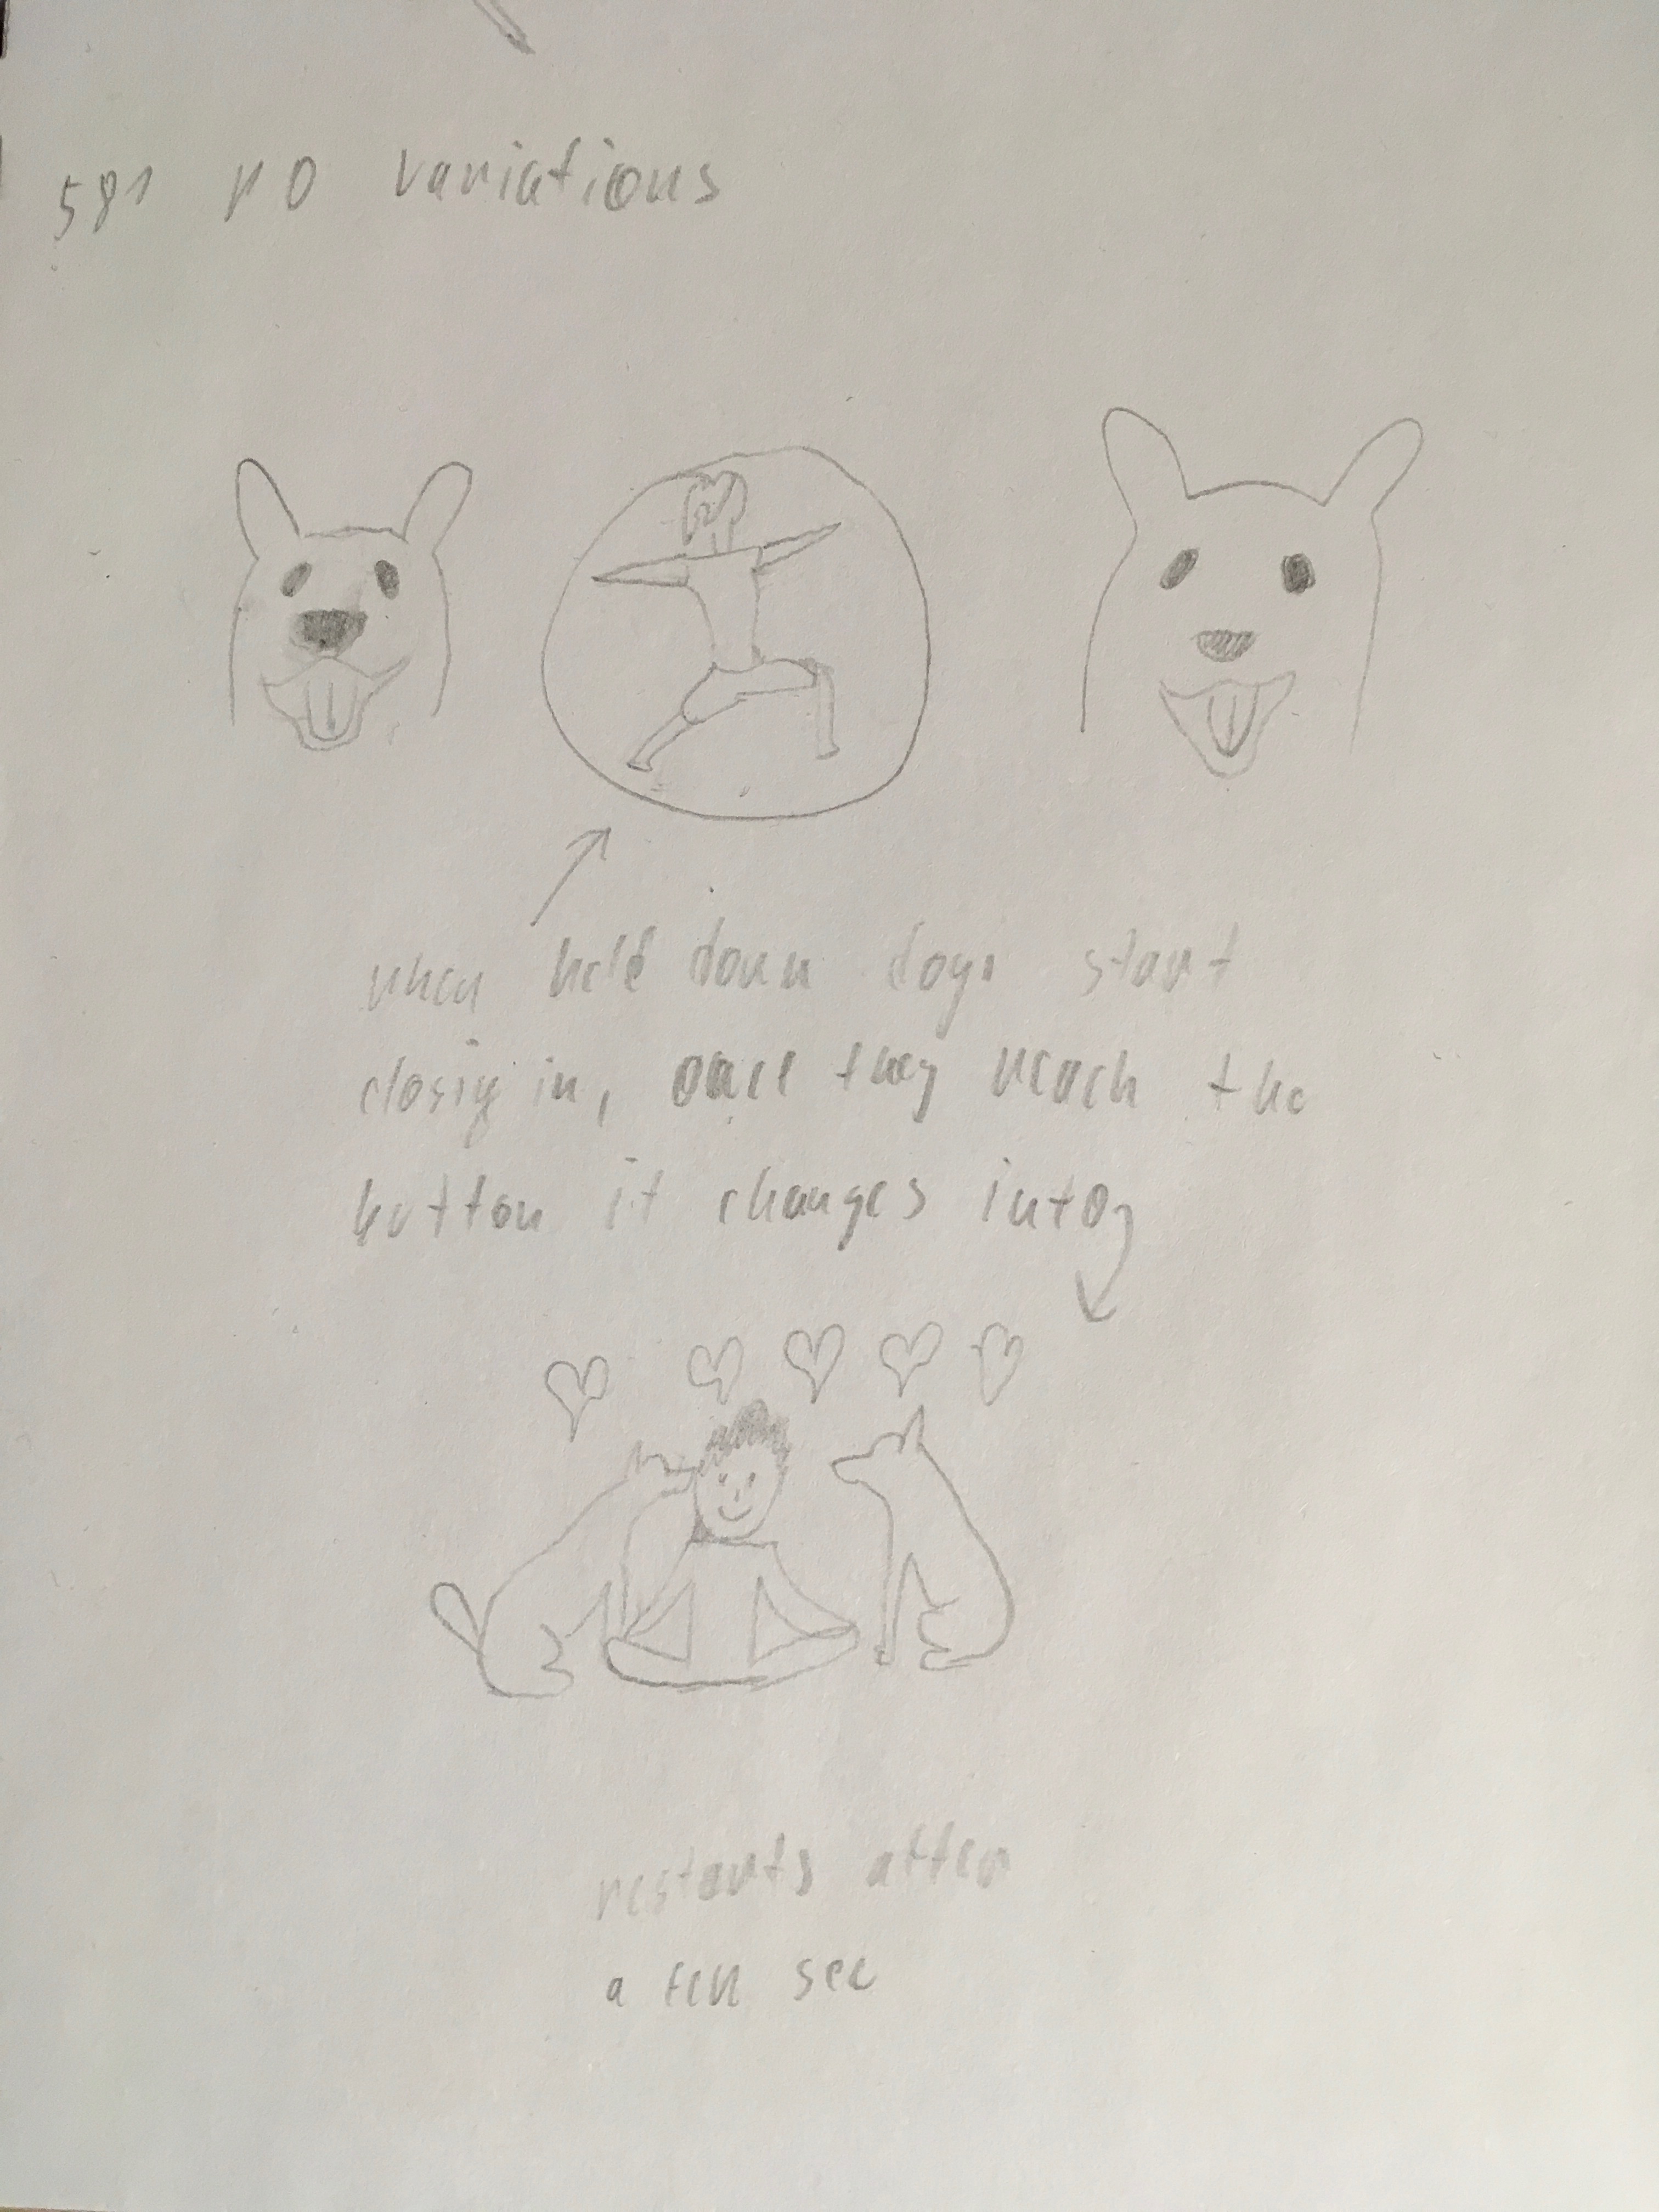 581 no variations
when held down dogs start
closig in, once they reach the
button it changes into
restarts after
a few sec